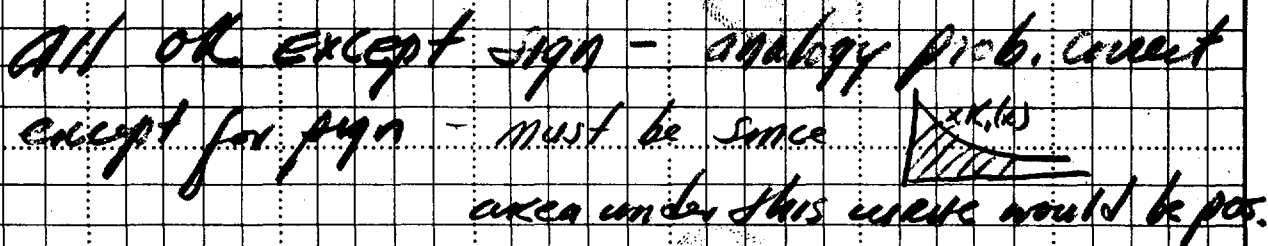 All OK except sign - analogy prob. correct
except for sign - must be since xK₁(x)
area under this curve would be pos.